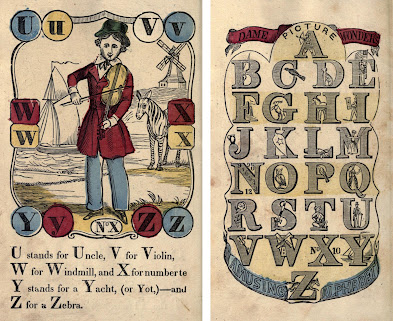 U U V V
W X
W X
Y V NºX Z Z
U stands for Uncle, V for Violin,
W for Windmill, and X for numberte
Y stands for a Yacht, (or Yot,)—and
Z for a Zebra.
DAME WONDERS
PICTURE
A
B C D E
F G H I
J K L M
N O P Q
12
R S T U
V W X Y
Nº 10
AMUSING
Z